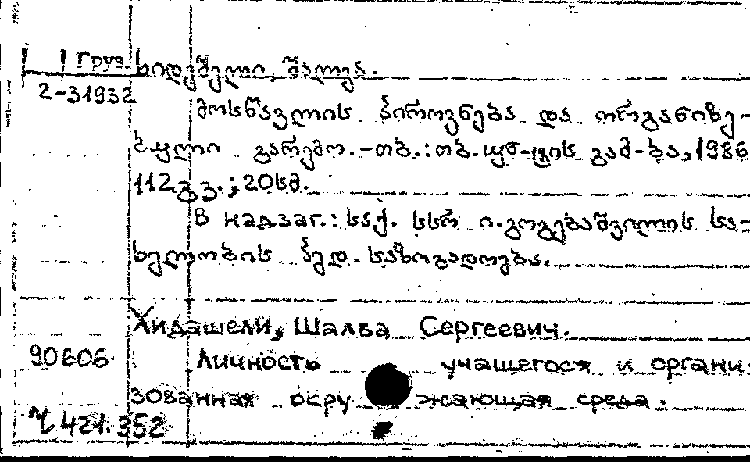 Груз. ხიდეშელი, შალვა.
2-31932
მოსწავლის პიროვნება და ორგანიზე-
ბული გარემო.-თბ.:თბ.უნ-ტის გამ-ბა,1986
112გვ.;20სმ.
В надзаг.: საქ. სსრ ი.გოგებაშვილის სა-
ხელობის პედ. საზოგადოება.
Хидашели, Шалва Сергеевич.
90606 Личность учащегося и органи-
зованная окружающая среда.
421.352